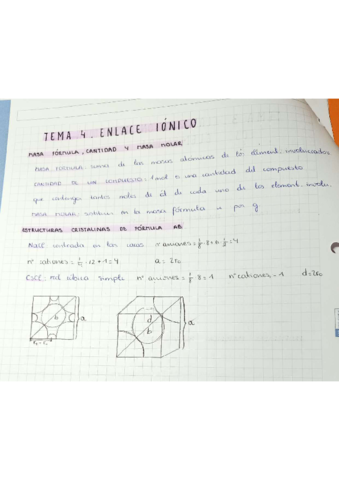 TEMA 4. ENLACE IÓNICO
MASA FÓRMULA, CANTIDAD Y MASA MOLAR
MASA FÓRMULA: suma de las masas atómicas de los element. involucrados
CANTIDAD DE UN COMPUESTO: 1 mol a una cantidad del compuesto
que contenga tantos moles de de cada uno de los element. involu.
MASA MOLAR: sustituir en la masa fórmula u por g
ESTRUCTURAS CRISTALINAS DE FÓRMULA AB
NaCl: centrada en las caras nº aniones = 1/8 · 8 + 6 · 1/2 = 4
nº cationes = 1/4 · 12 + 1 = 4 a =
CsCl: red cúbica simple nº aniones = 1/8 · 8 = 1 nº cationes = 1
b
a
d
b
a